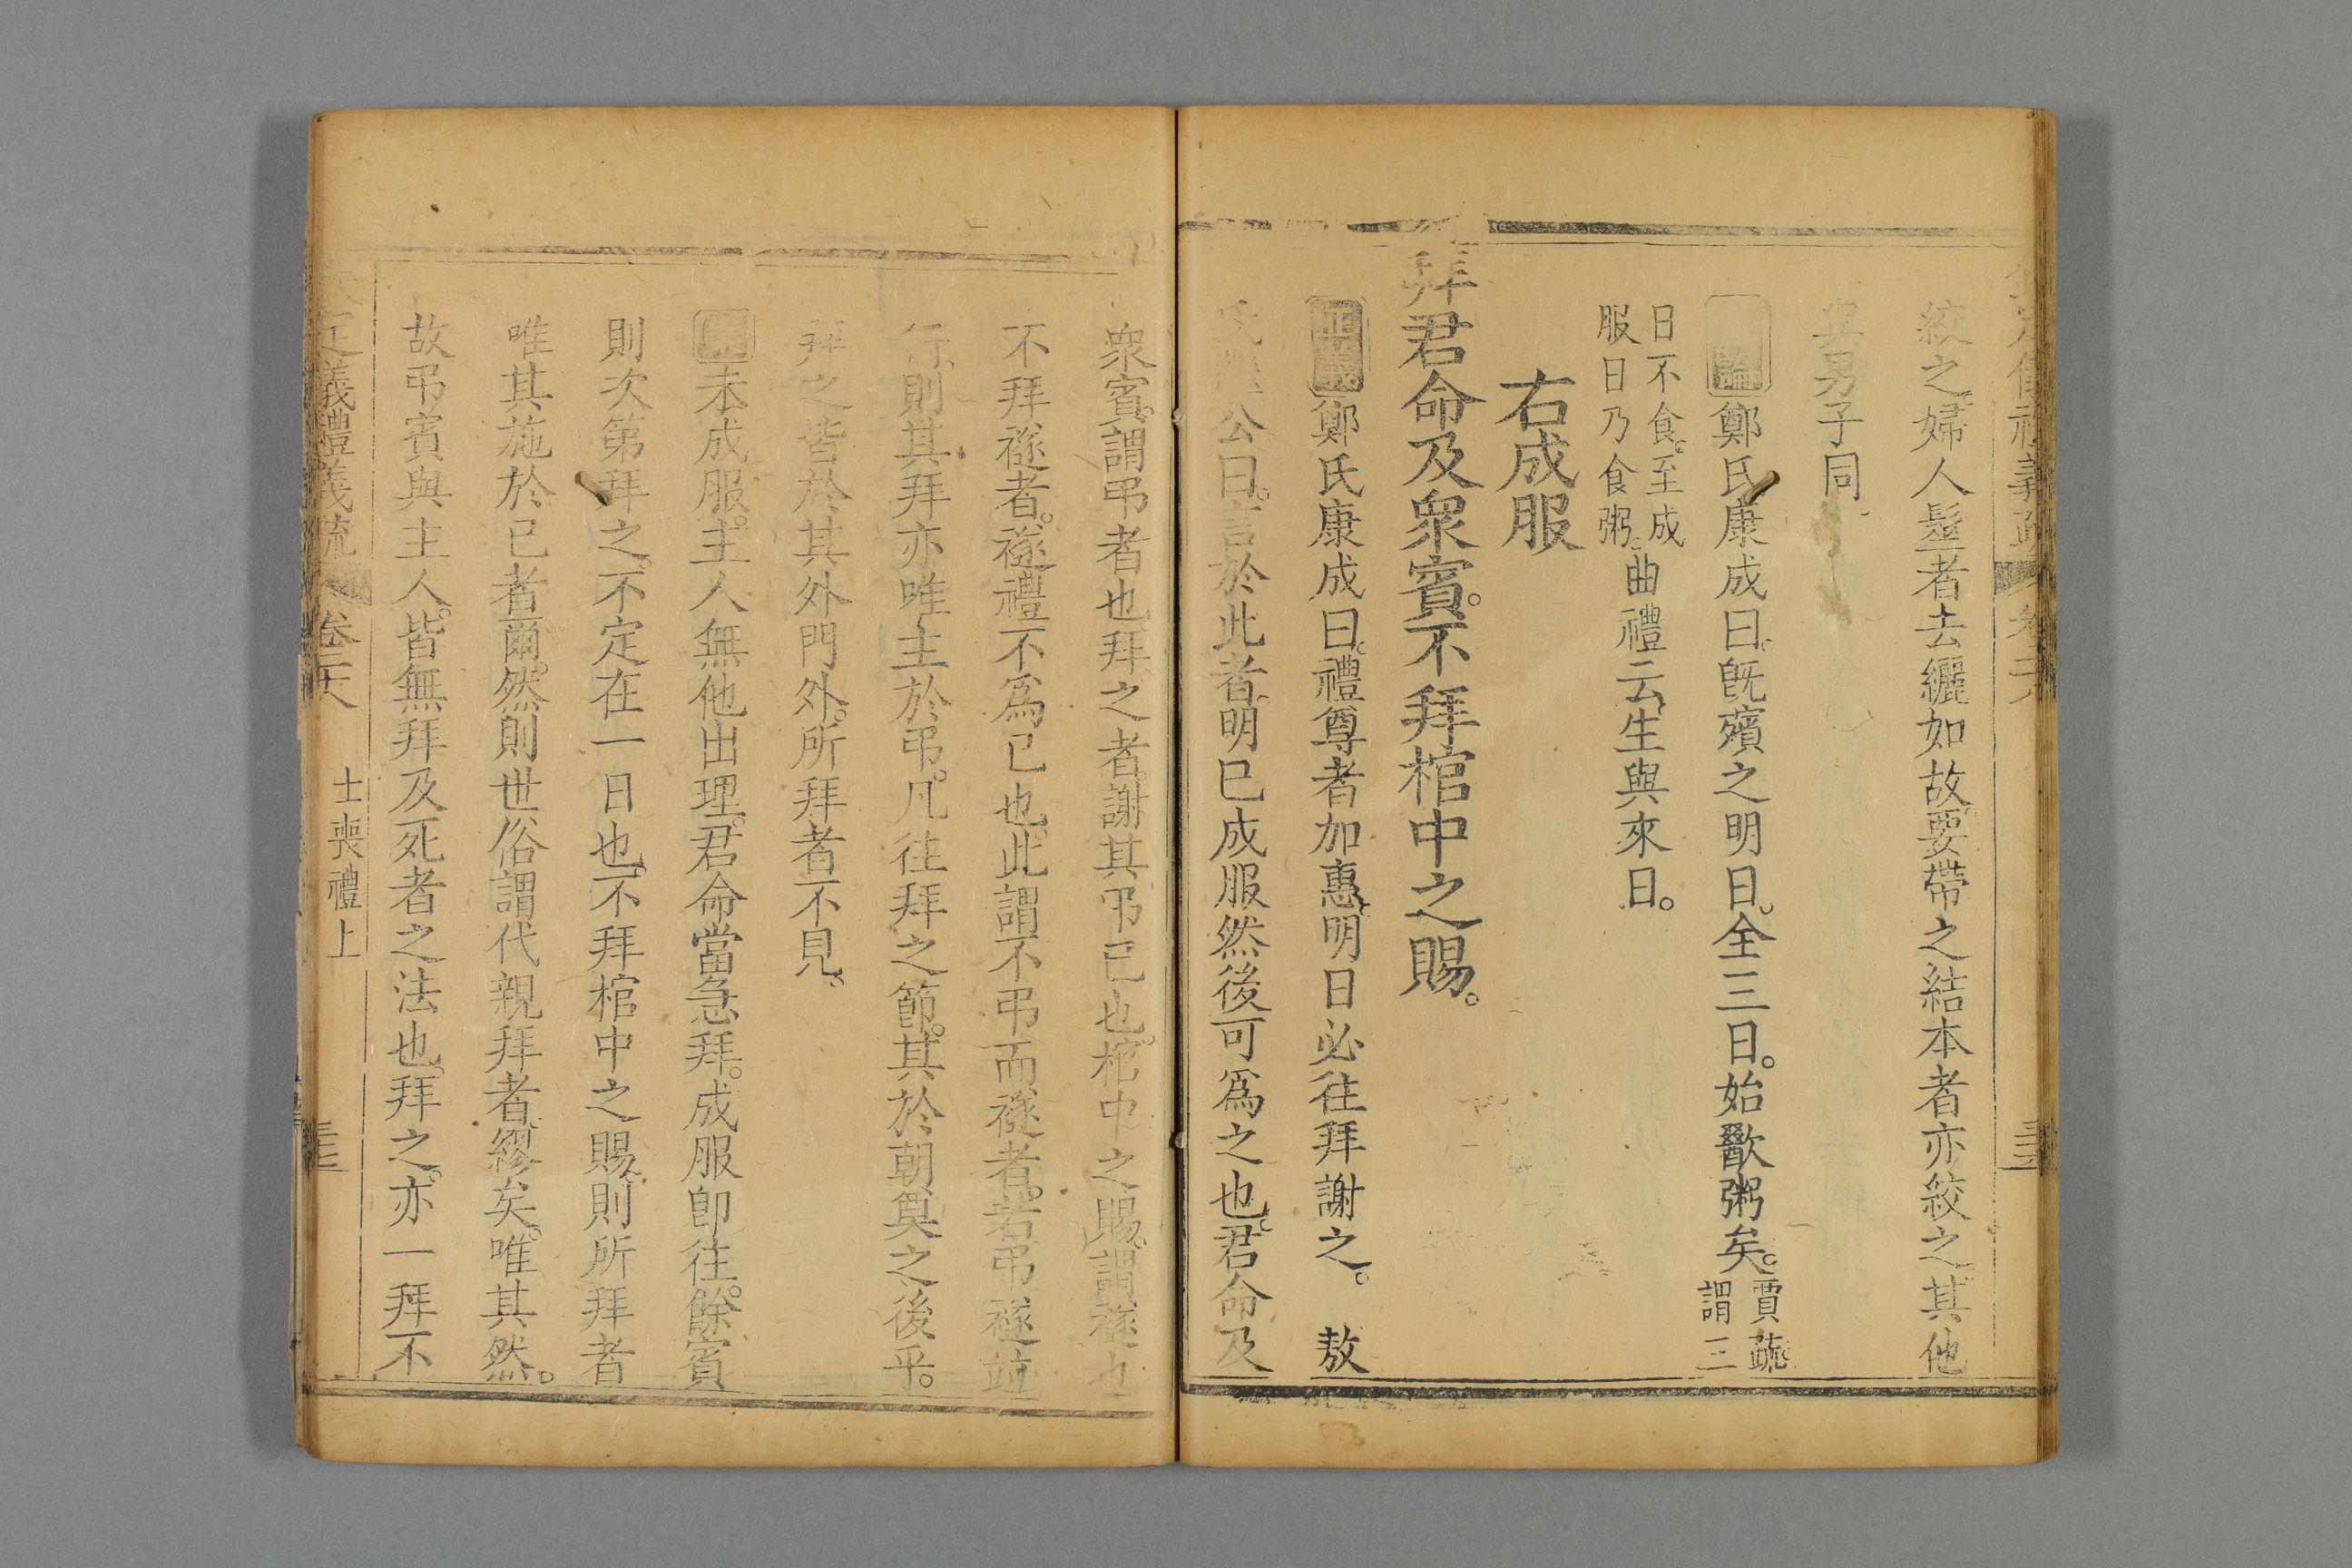 絞之婦人髽者去纚如故要帶之結本者亦絞之其他
與男子同
論鄭氏康成曰。旣殯之明日。全三日。始歠粥矣。賈疏。謂三
日不食。至成服日乃食粥。曲禮云生與來日。
右成服
拜君命及衆賓。不拜棺中之賜。
正義鄭氏康成曰。禮尊者加惠。明日必往拜謝之。 敖
氏公曰。言於此者。明已成服然後可爲之也。君命及
衆賓。謂弔者也。拜之者。謝其弔已也。棺中之賜。謂襚也
不拜襚者。襚禮不爲已也。此謂不弔而襚者。若弔襚竝
行。則其拜亦唯主於弔。凡往拜之節。其於朝奠之後乎。
拜之皆於其外門外。所拜者不見。
未成服。主人無他出理。君命當急拜。成服卽往。餘賓
則次第拜之。不定在一日也。不拜棺中之賜。則所拜者
唯其施於已者爾。然則世俗謂代親拜者。繆矣。唯其然。
故弔賓與主人。皆無拜及死者之法也。拜之。亦一拜不
正義禮義疏 卷二十八 士喪禮上